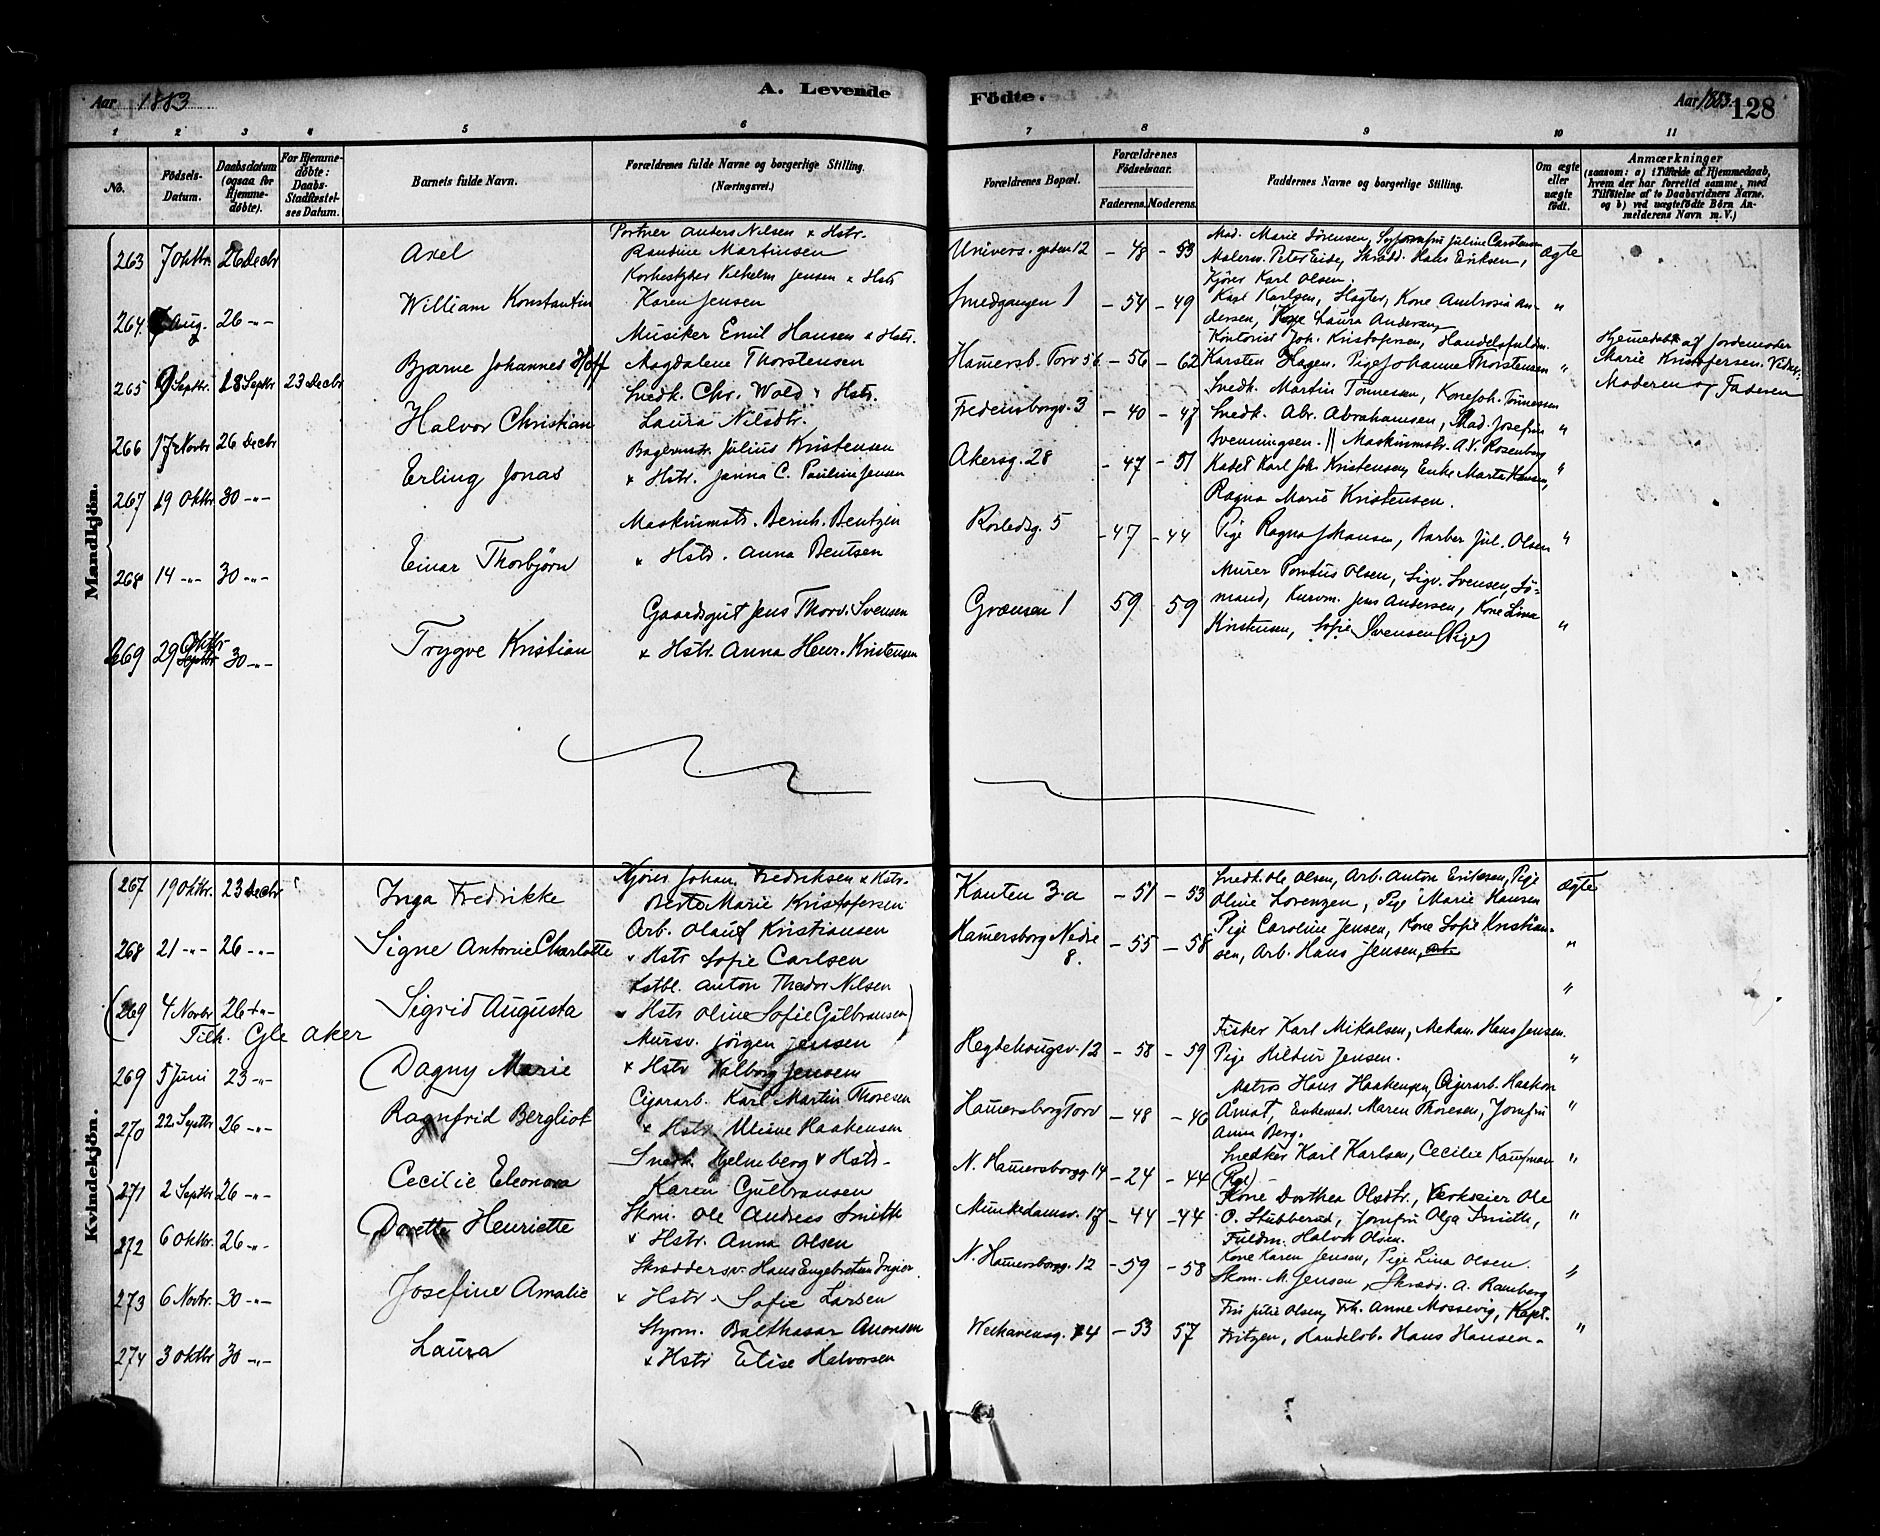 Aar 1883 A. Levende
Födte. Aar 1883. 128
1 2 3 4 5 6 7 8 9 10 11
No. Födsels-Datum. Daabsdatum (ogsaa for Hjemme-døbte). For Hjemme-døbte: Daabs-Stadfæstel-ses Datum. Barnets fulde Navn. Forældrenes fulde Navne og borgerlige Stilling. (Næringsvei.)
Forældrenes Bopæl. Forældrenes Fødselsaar. Faderens. Moderens. Faddernes Navne og borgerlige Stilling. Om ægte eller uægte født. Anmærkninger (saasom: a) i Tilfælde af Hjemmedaab, hvem der har forrettet samme, med Tilføielse af to Daabsvidners Navne, og b) ved uægtefødte Børn An-melderens Navn m. V.)
Mandkjön.
263 7 Oktbr. 26 Decbr Axel Portner Anders Nilsen & Hstr.
Randine Martinsen
Univers. gaden 12 - 48 - 53 Mad. Marie Sørensen, Syjomfru Juline Carstensen
Malerm. Peter Eide, Skrædd. Hans Eriksen, Ægte
Kjører Karl Olsen.
264 Aug. 26 -"- William Konstantin Vilhelm Jensen & Hstr
Karen Jensen
Smedgangen 1 - 54 - 49 Karl Karlsen, Slagter, Kone Ambrosia An-
dersen, Kone Laura Andersen "
265 9 Septbr. 18 Septbr 23 Decbr Bjarne Johannes Hoff Musiker Emil Hansen & Hstr.
Magdalene Thorstensen
Hamersb. Torv 5b - 56 - 62 Kontorist Joh. Kristofersen, Handelsfuldm.
Karsten Hagen, Pige Johanne Thorstensen "
Hjemedøbt af Jordemoder
Marie Kristofersen. Vidner,
Moderen og Faderen
266 17 Novbr 26 Decbr Halvor Christian Snedk. Chr. Wold & Hstr.
Laura Nilsdtr.
Fredensborgv. 3 - 40 - 47 Snedk. Martin Tønnesen, Kone Joh. Tønnesen
Snedk. Abr. Abrahamsen, Mad. Josefine "
Svenningsen. // Maskinmstr. A.V. Rosenberg
267 19 Oktbr 30 -"- Erling Jonas Bagermstr. Julius Kristensen
& Hstr. Janna C. Pauline Jensen
Akersg. 28 - 47 - 51 Kadet Karl Joh. Kristensen, Enke Marta Hansen, "
Ragna Marie Kristensen.
268 14 -"- 30 -"- Einar Thorbjørn Maskinmstr. Bernh. Bentzin
& Hstr. Anna Bentsen
Rosledsg. 5 - 47 - 44 Pige Ragna Johansen, Barber Jul. Olsen "
269 29 Oktbr Septbr 30 -"- Trygve Kristian Gaardsgut Jens Thorv. Svensen
& Hstr. Anna Henr. Kristensen
Grændsen 1 59 - 59 Murer Pontus Olsen, Sigv. Svensen, Sø-
mand, Kurvm. Jens Andersen, Kone Lina
Kristensen, Sofie Svensen (Pige) "
Kvindekjön.
267 19 Oktbr. 23 Decbr Inga Fredrikke Kjører Johan Fredriksen & Hstr.
Berte Marie Kristofersen
Kanten 3a - 51 - 53 Snedk. Ole Olsen, Arb. Anton Eriksen, Pige
Oline Lorenzen, Pige Marie Hansen Ægte
268 21 -"- 26 -"- Signe Antonie Charlotte Arb. Olauf Kristiansen
& Hstr Sofie Carlsen
Hamersborg Nedre 8. - 55 - 58 Pige Caroline Jensen, Kone Sofie Kristian-
sen, Arb. Hans Jensen, "
(269 4 Novbr 26 -"- Sigrid Augusta Lstbl. Anton Theodor Nilsen
& Hstr Oline Sofie Gulbransen) "
Tilh. Gle Aker
269 5 Juni 23 -"- Dagny Marie Mursv. Jørgen Jensen
& Hstr Valborg Jensen
Hegdehaugsv. 12 - 58 - 59 Fisker Karl Mikalsen, Mekan. Hans Jensen.
Pige Hildur Jensen. "
270 22 Septbr 26 -"- Ragnfrid Bergliot Cigararb. Karl Martin Thoresen
& Hstr Haakensen
Hamersborg Torv - 48 - 46 Matros Hans Haakensen, Cigararb. Haakon
Åmot, Enkemad. Maren Thoresen, Jomfru
Anna Berg. "
271 2 Septbr 26 -"- Cecilie Eleonora Snedk. Hjelmberg & Hstr.
Karen Gulbransen
N. Hamersborgg. 14 - 24 - 44 Snedker Karl Karlsen, Cecilie Kaufman
(Pige) "
272 6 Oktbr. 26 -"- Dorette Henriette Skom. Ole Andreas Smith
& Hstr. Anna Olsen
Munkedamsv. 17 - 44 - 44 Kone Dorthea Olsdtr., Ole
O. Stubberud, Jomfru Olga Smith,
Fuldm. Halvor Olsen. "
273 6 Novbr. 30 -"- Josefine Amalie Skræddersv. Hans Engebretsen
& Hstr. Sofie Larsen
N. Hamersborgg. 12 - 59 - 58 Kone Karen Jensen, Pige Lina Olsen.
Skom. M. Jensen, Skrædd. A. Ramberg "
274 3 Oktbr 30 -"- Laura Styrm. Balthasar Aronsen
& Hstr Elise Halvorsen
- 53 57 Fru Julie Olsen, Frk. Anne Mossevig, Kapt.
Fritzen, Handelsb. Hans Hansen. "